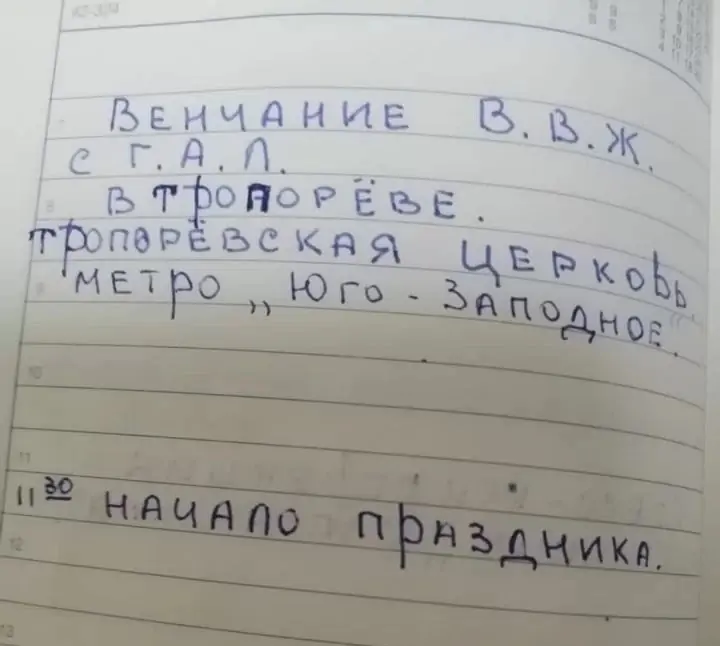 ВЕНЧАНИЕ В.В.Ж.
С Г.А.Л.
В ТРОПОРЁВЕ.
ТРОПОРЁВСКАЯ ЦЕРКОВЬ
МЕТРО „ЮГО-ЗАПОДНОЕ".
10
11
11³⁰ НАЧАЛО ПРАЗДНИКА.
12
13